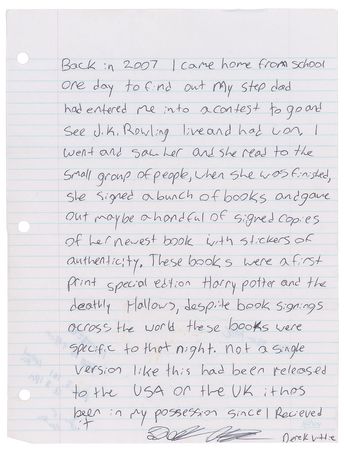 Back in 2007 I came home from school
one day to find out my step dad
had entered me into a contest to go and
see J.K. Rowling live and had won, I
went and saw her and she read to the
small group of people, when she was finished,
she signed a bunch of books and gave
out maybe a handful of signed copies
of her newest book with stickers of
authenticity. These books were a first
print special edition Harry potter and the
deathly Hallows, despite book signings
across the world these books were
specific to that night. Not a single
version like this had been released
to the USA or the UK it has
been in my possession since I Recieved
it
Derek